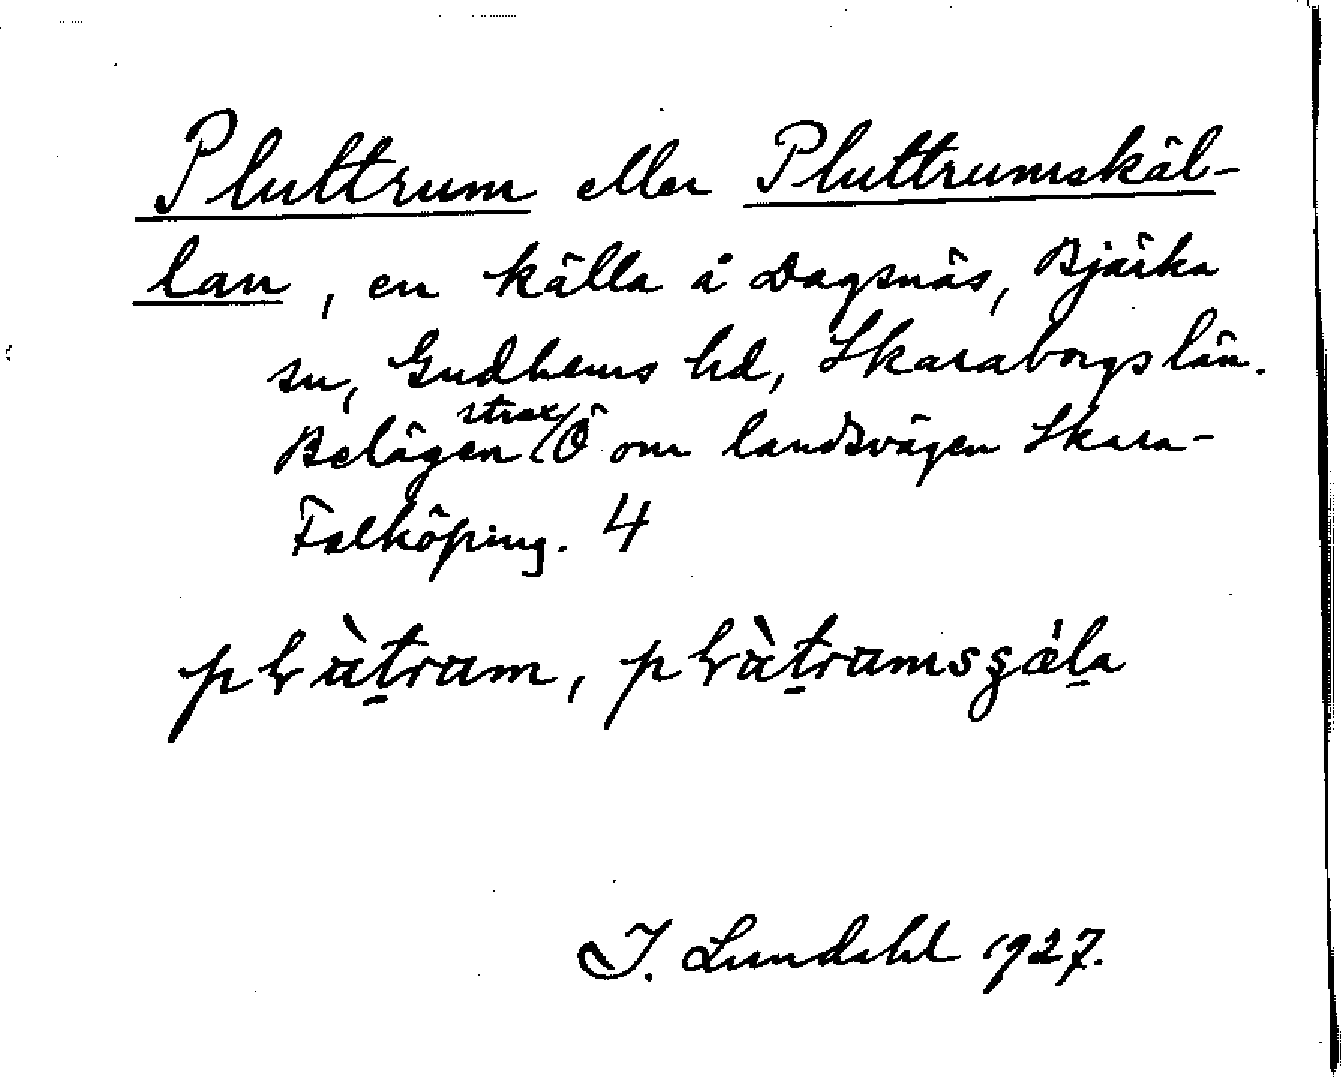 Pluttrum eller Pluttrumskäl-
lan, en källa å Dagsnäs, Bjärka
sn, Gudhems hd, Skaraborgs län.
Belägen strax Ö om landsvägen Skara-
Falköping. 4
I. Lundahl 1927.